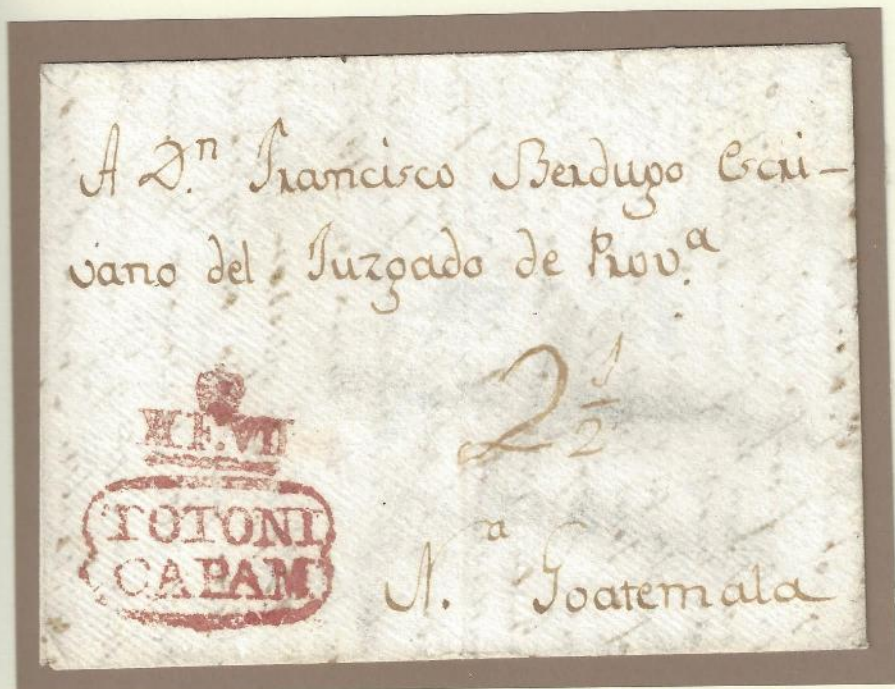 A D.ⁿ Francisco Berdugo Escri-
vano del Juzgado de Prov.ᵃ
2 1/2
F. VII
TOTONI
CAPAM
N.ᵃ Goatemala